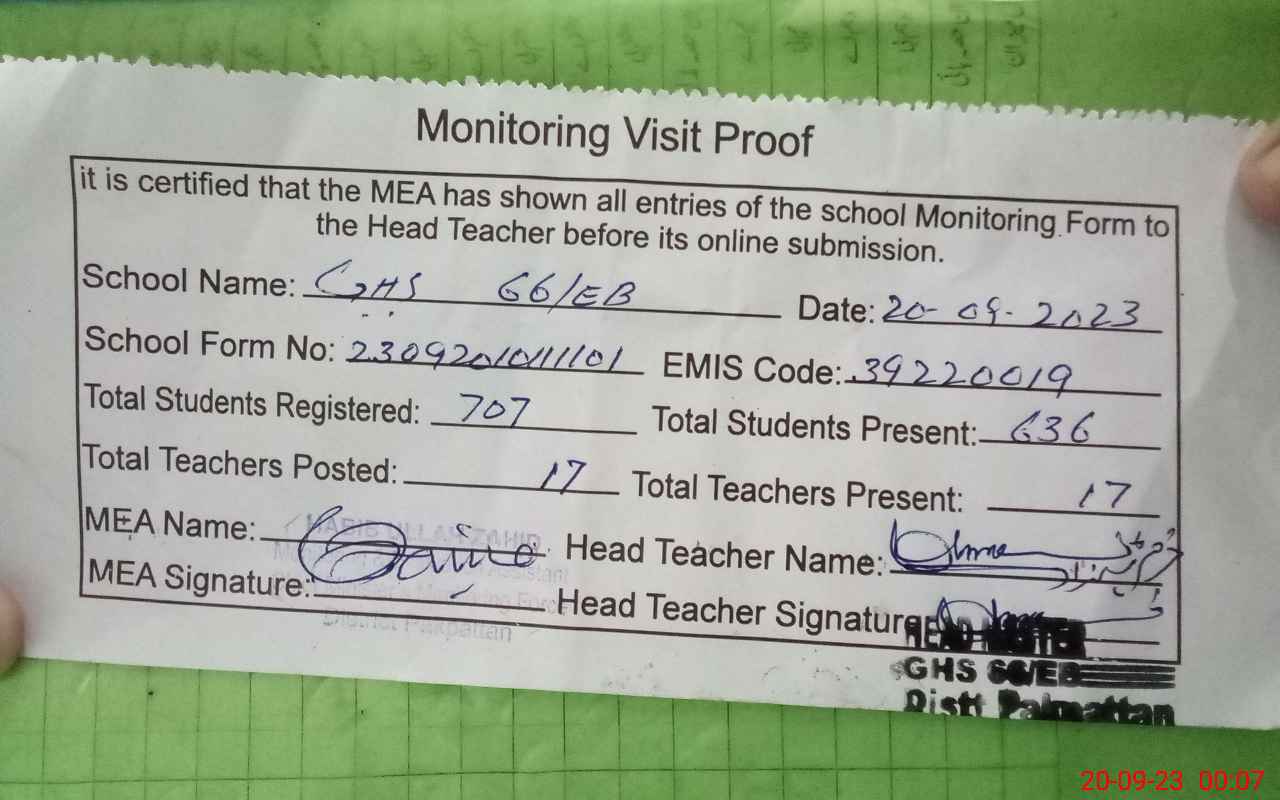 Monitoring Visit Proof
it is certified that the MEA has shown all entries of the school Monitoring Form to
the Head Teacher before its online submission.
School Name: GHS 66/EB Date: 20-09-2023
School Form No: 2309201011101 EMIS Code: 39220019
Total Students Registered: 707 Total Students Present: 636
Total Teachers Posted: 17 Total Teachers Present: 17
MEA Name: HABIB ULLAH ZAHID Head Teacher Name:
Assistant
MEA Signature: Head Teacher Signature
Monitoring Force
District Pakpattan
HEAD MASTER
GHS 66/EB
Distt Pakpattan
20-09-23 00:07